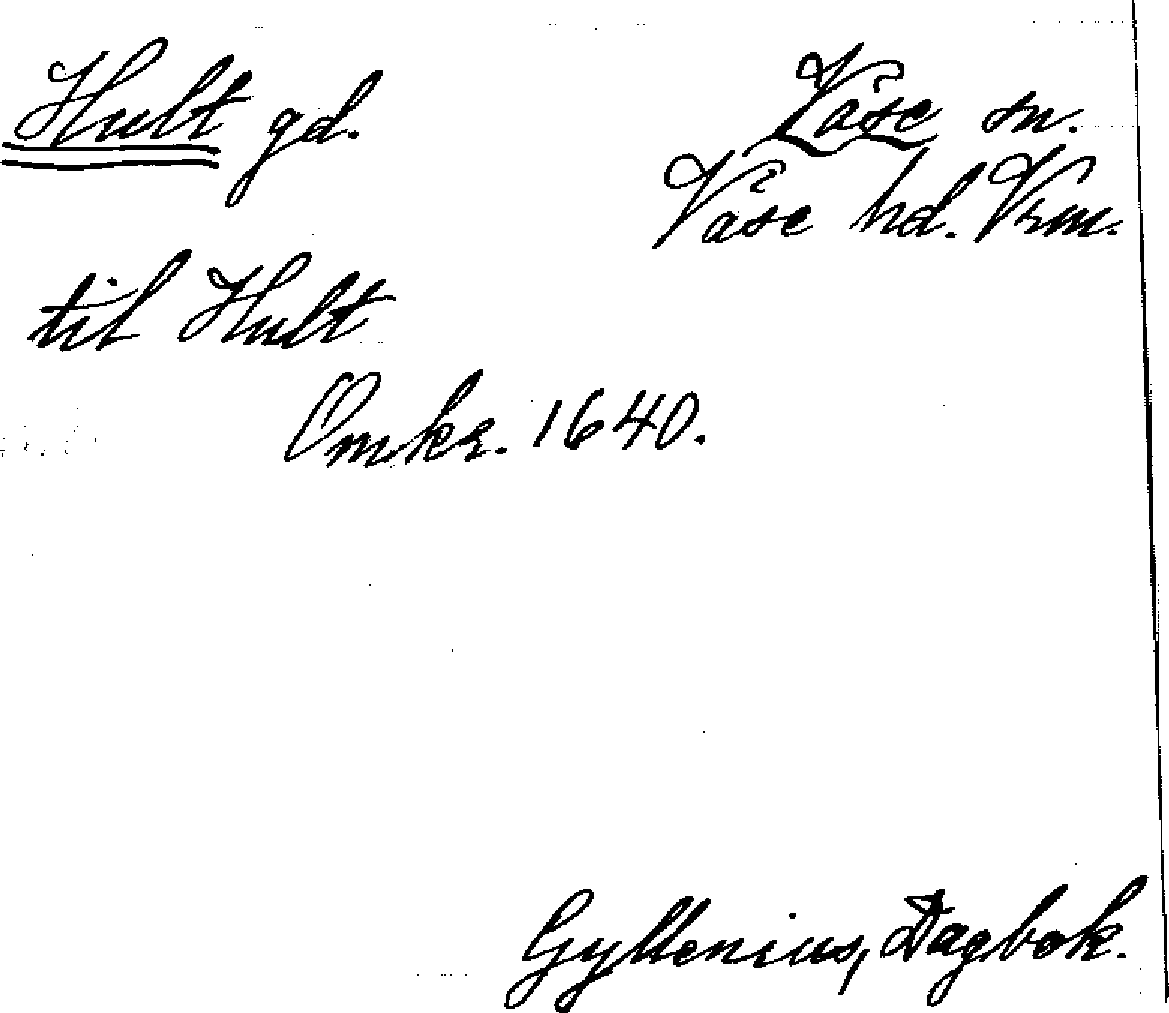 Hult gd. Väse sn.
Väse hd. Vrm.
til Hult
Omkr. 1640.
Gyllenius, Dagbok.